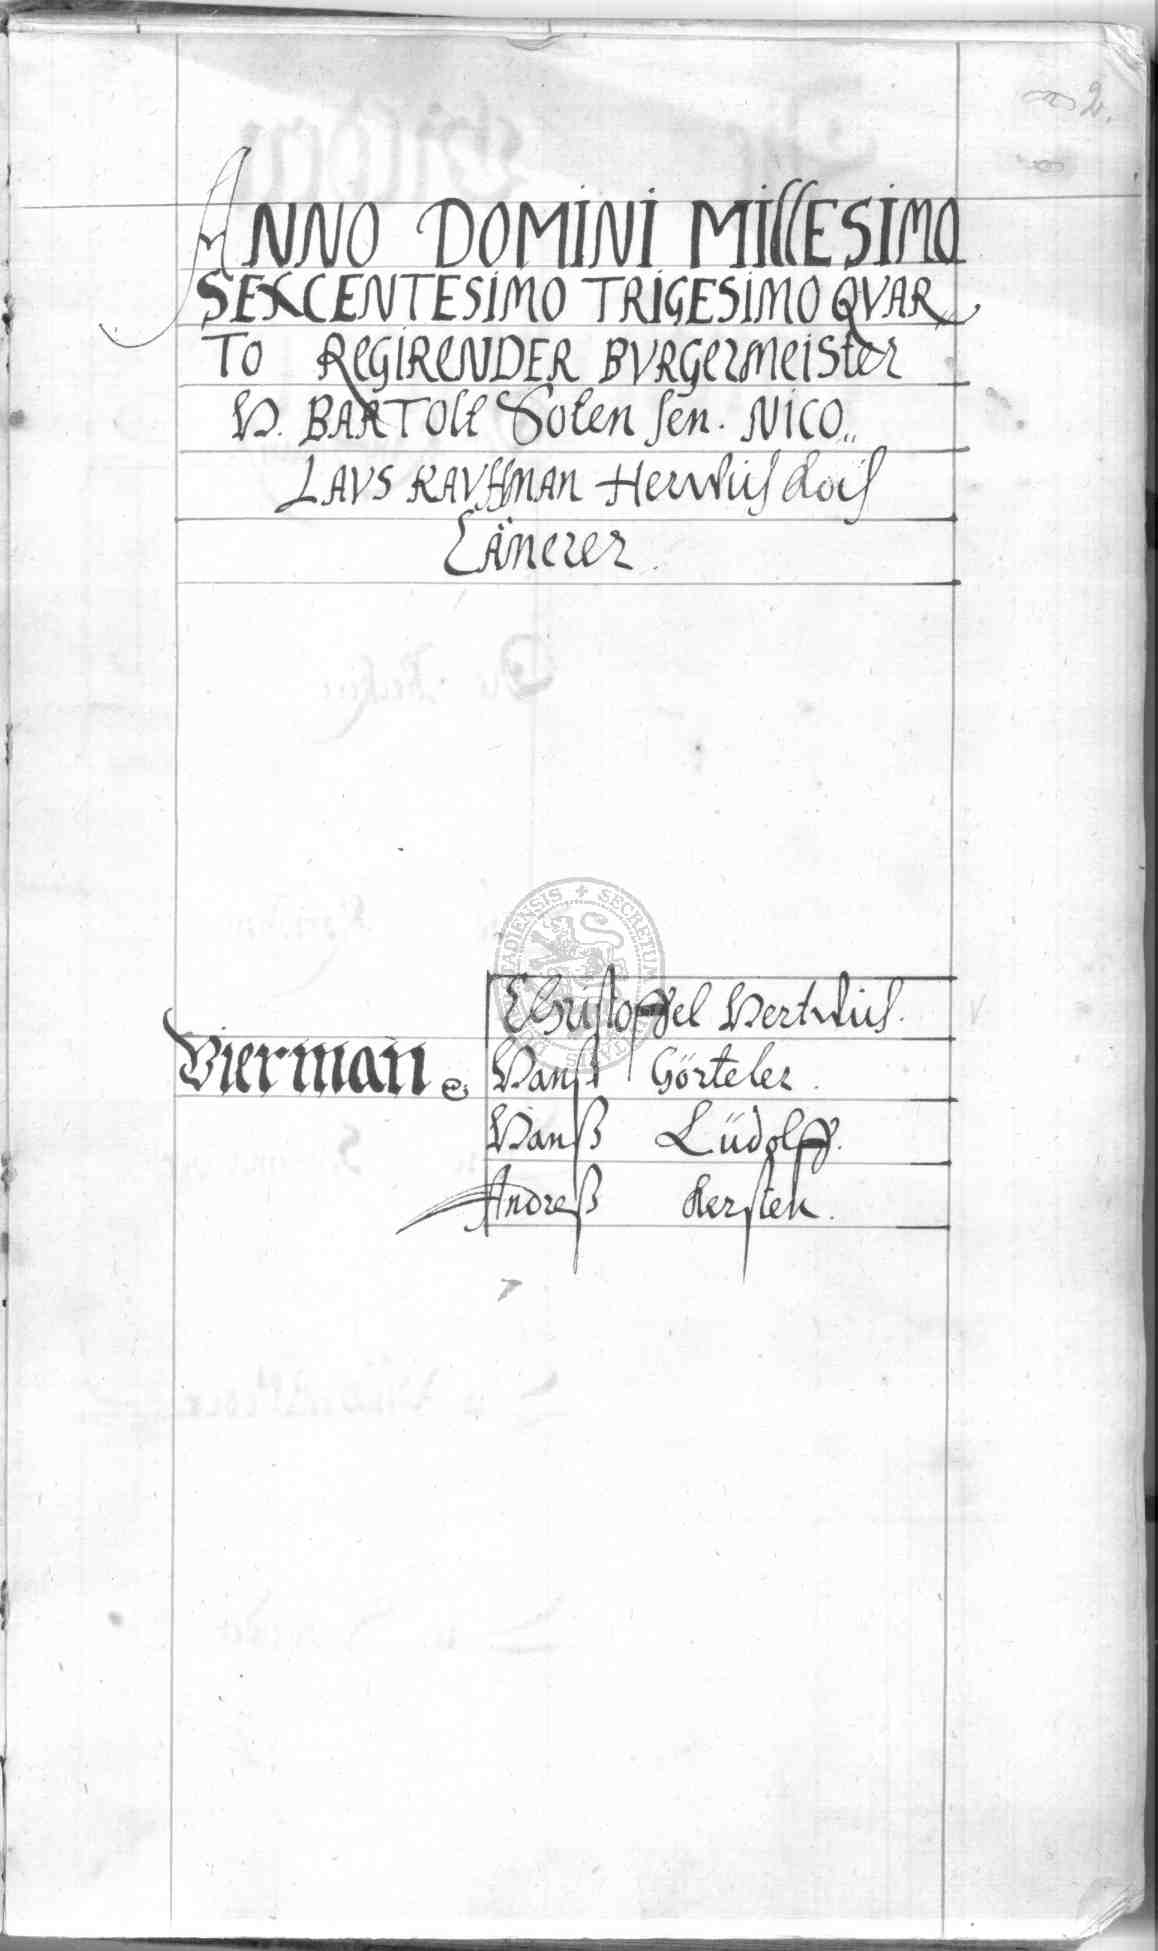 2.
ANNO DOMINI MILLESIMO
SEXCENTESIMO TRIGESIMO QVAR
TO REGIRENDER BVRGERMEISTER
H. BARTOLT Soten sen. NICO„
LAVS KAVFFMAN Herwiich
Cämerer.
Christoffel Hertwich.
Vierman
Hanß Görteler.
Hanß Lüdolff.
Andreß Kersten.